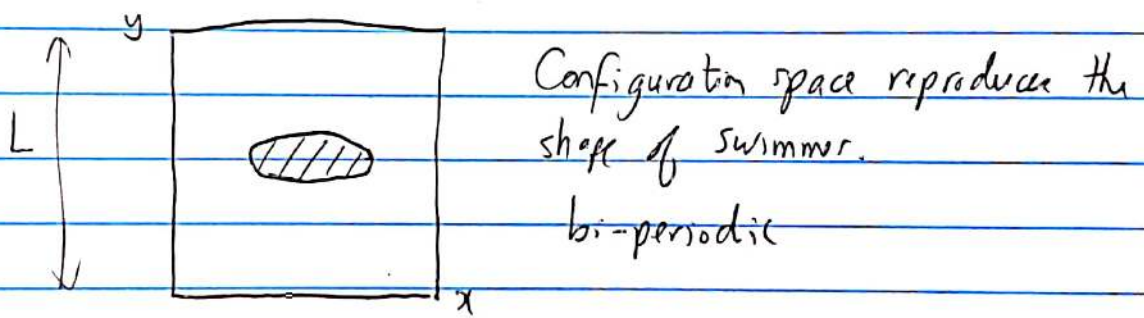 y
L
Configuration space reproduces the
shape of swimmer.
bi-periodic
x